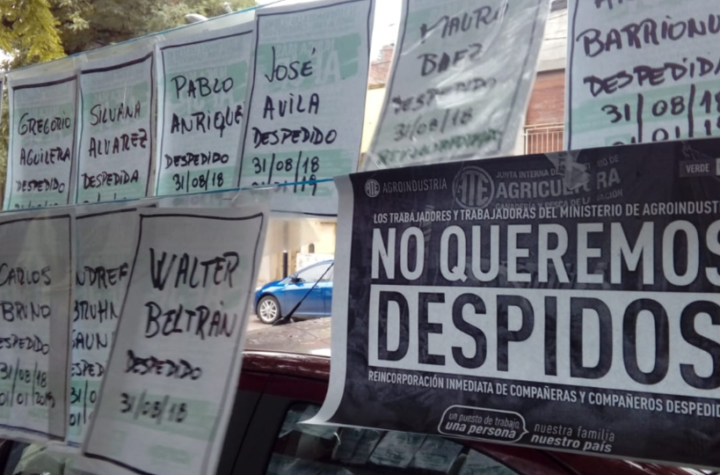 GREGORIO
AGUILERA
DESPEDIDO
SILVANA
ALVAREZ
DESPEDIDA
31/08/18
PABLO
ANRIQUE
DESPEDIDO
31/08/18
JOSÉ
AVILA
DESPEDIDO
31/08/18
MAURO
BAEZ
DESPEDIDO
31/08/18
BARRIONU
DESPEDIDA
31/08/18
CARLOS
BRUNO
ESPEDIDO
31/08/18
01/01/2019
NDREA
BRUHN
AUN
ESPED
31/08
WALTER
BELTRÁN
DESPEDIDO
31/08/18
ATE AGROINDUSTRIA
ATE
JUNTA INTERNA DE
AGRICULTURA
VERDE
LOS TRABAJADORES Y TRABAJADORAS DEL MINISTERIO DE AGROINDUST
NO QUEREMOS
DESPIDOS
REINCORPORACIÓN INMEDIATA DE COMPAÑERAS Y COMPAÑEROS DESPEDID
un puesto de trabajo
una persona
nuestra familia
nuestro país